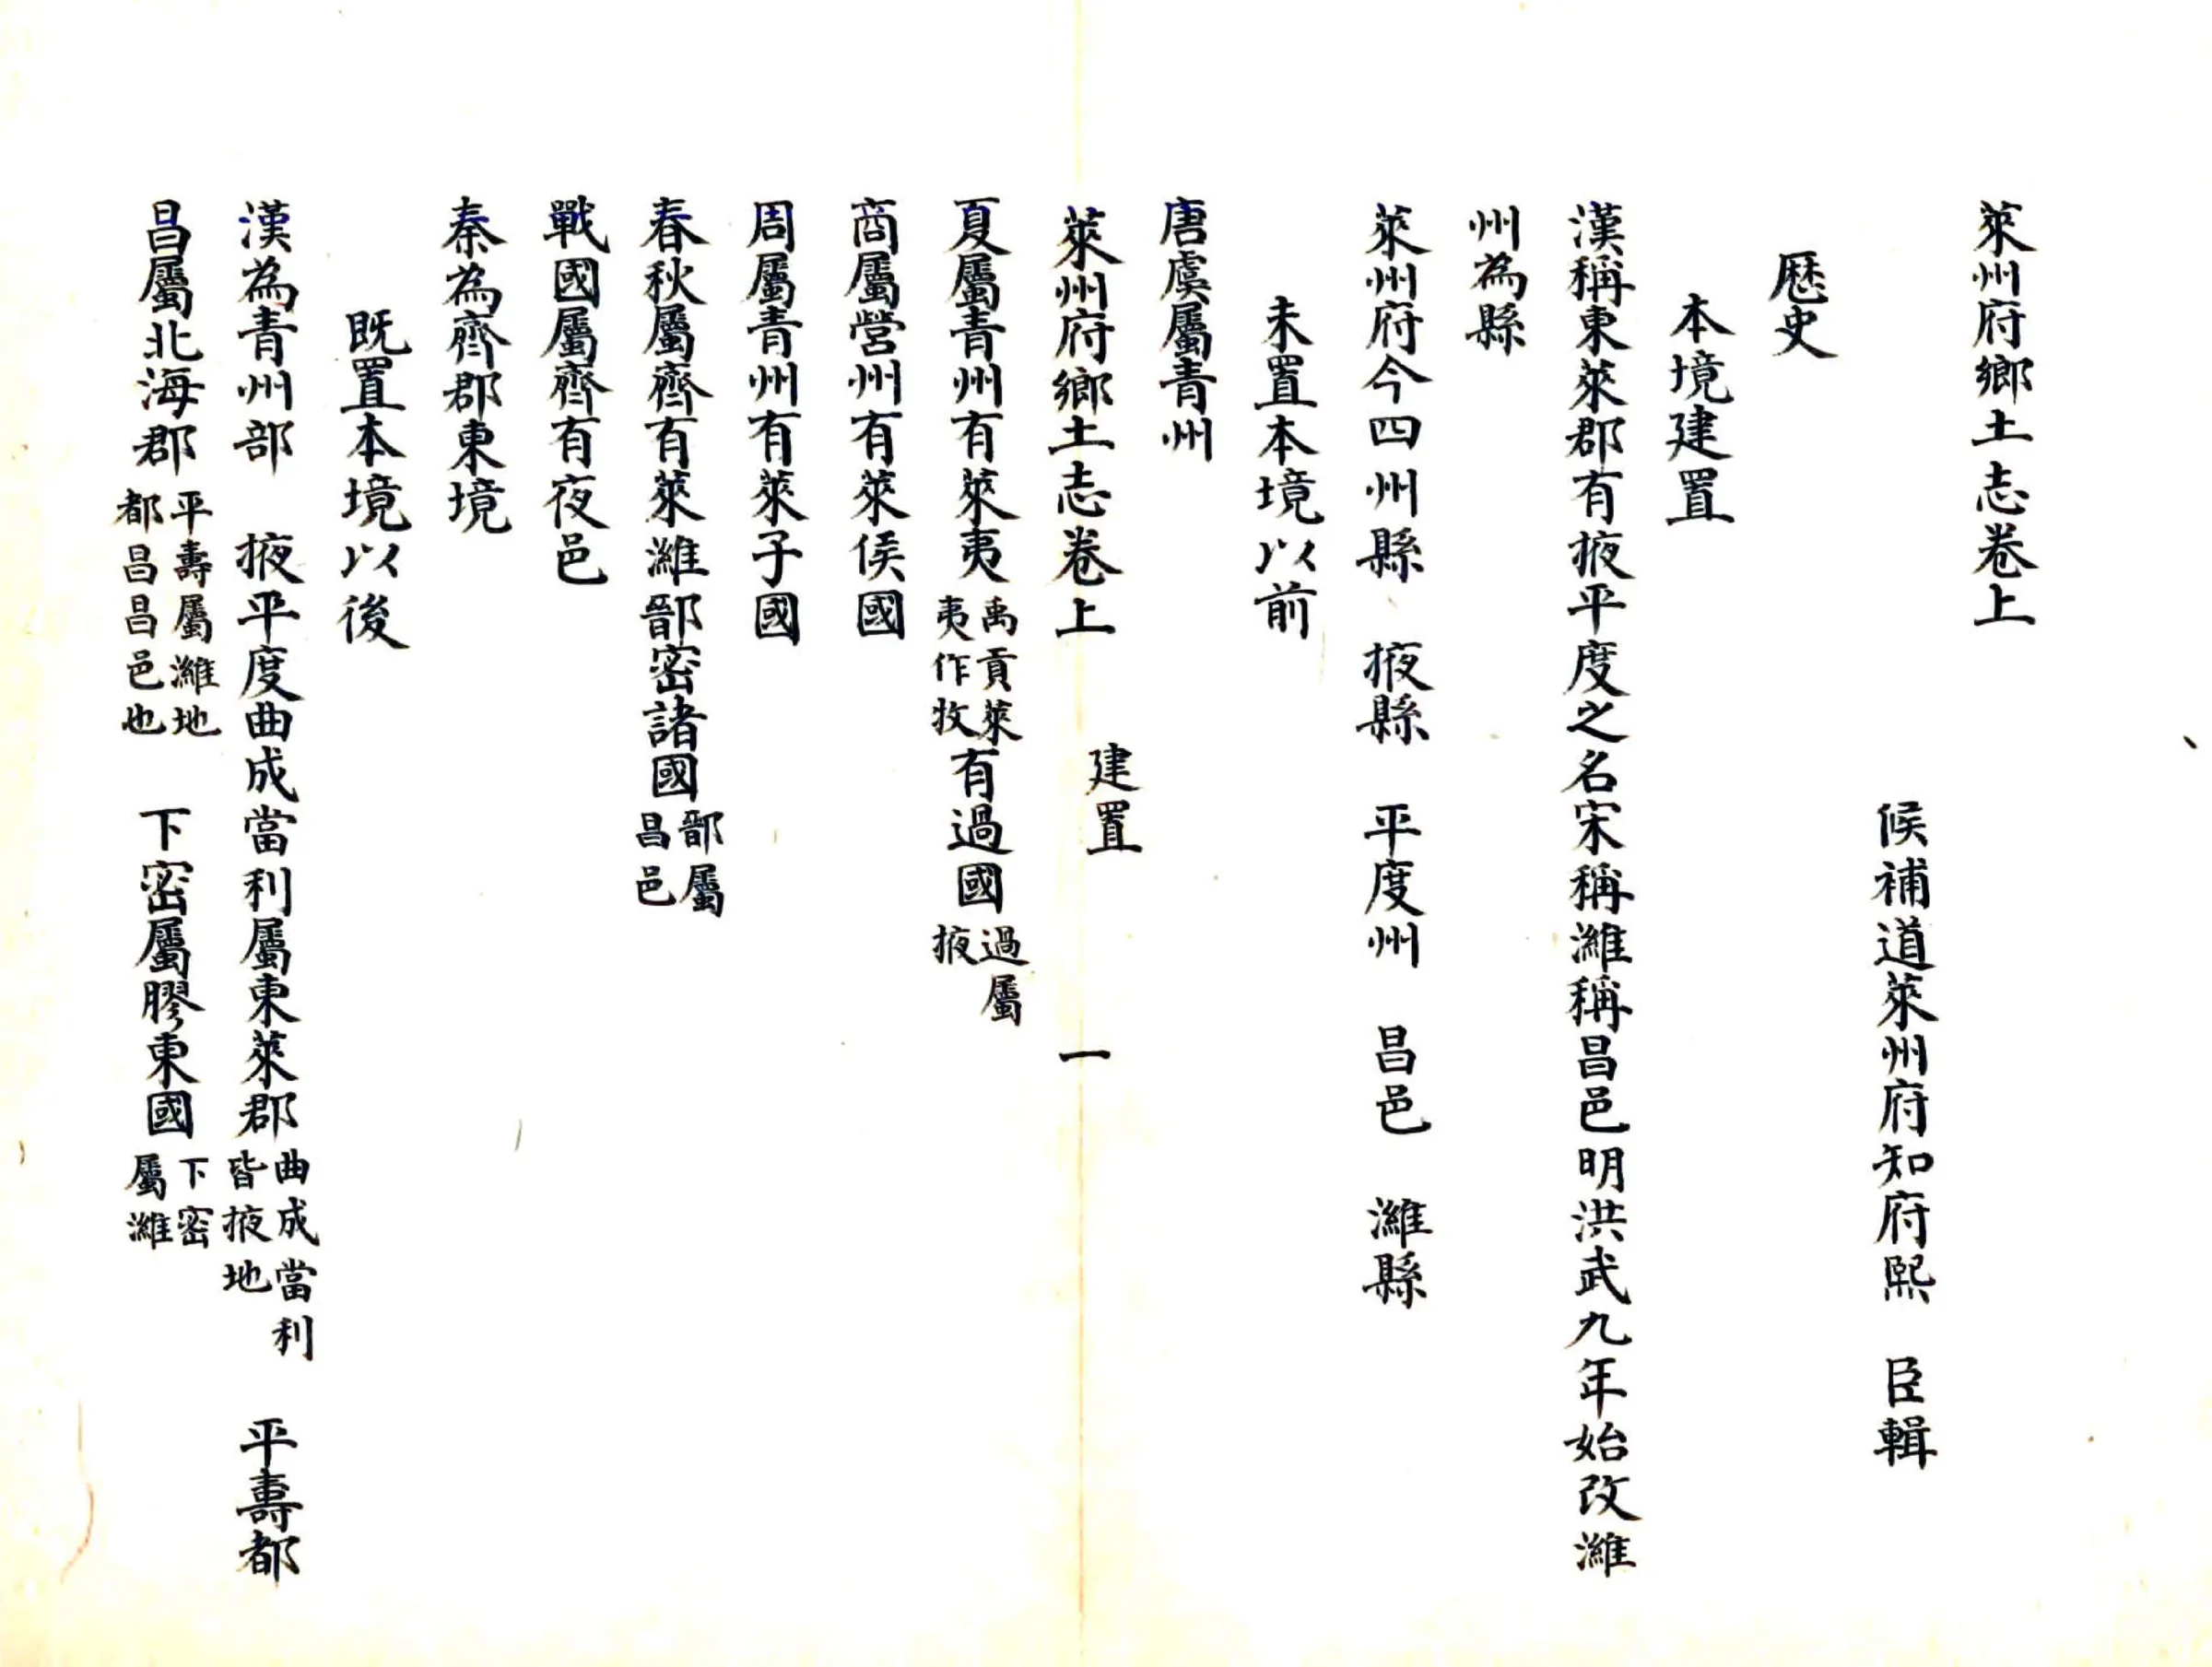 萊州府鄉土志卷上
候補道萊州府知府熙 臣輯
歷史
本境建置
漢稱東萊郡有掖平度之名宋稱濰稱昌邑明洪武九年始改濰
州為縣
萊州府今四州縣 掖縣 平度州 昌邑 濰縣
未置本境以前
唐虞屬青州
萊州府鄉土志卷上 建置 一
夏屬青州有萊夷禹貢萊夷作牧有過國過屬掖
商屬營州有萊侯國
周屬青州有萊子國
春秋屬齊有萊濰鄑密諸國鄑屬昌邑
戰國屬齊有夜邑
秦為齊郡東境
既置本境以後
漢為青州部 掖平度曲成當利屬東萊郡曲成當利皆掖地 平壽都
昌屬北海郡平壽屬濰地都昌昌邑也 下密屬膠東國下密屬濰